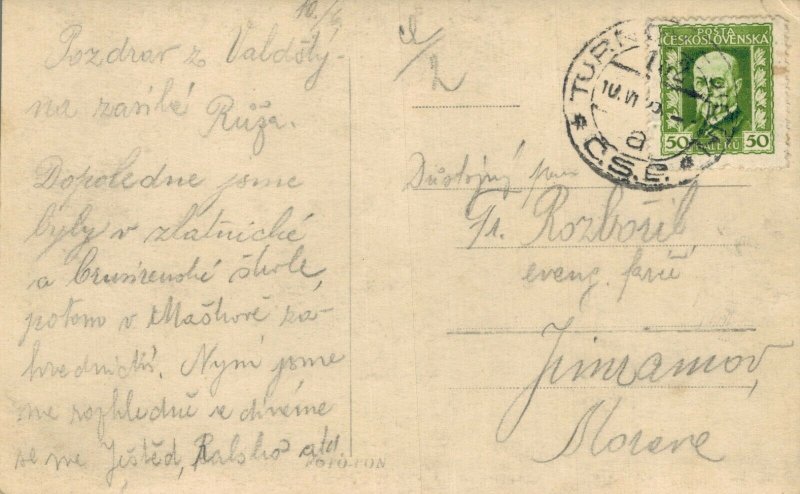 10/6
Pozdrav z Valdštý-
na zasílá
Růža.
Dopoledne jsme
byly v zlatnické
a brusírenské škole,
potom v Maškově za-
hradnictví. Nyní jsme
na rozhledně a díváme
se na Ještěd, Ralsko atd
FOTOFON
POSTA
ČESKOSLOVENSKÁ
50 50
TURN
10.VI
a
* Č.S.R. *
Důstojný pan
Fr. Rozbořil
evang. farář
Jimramov,
Morava